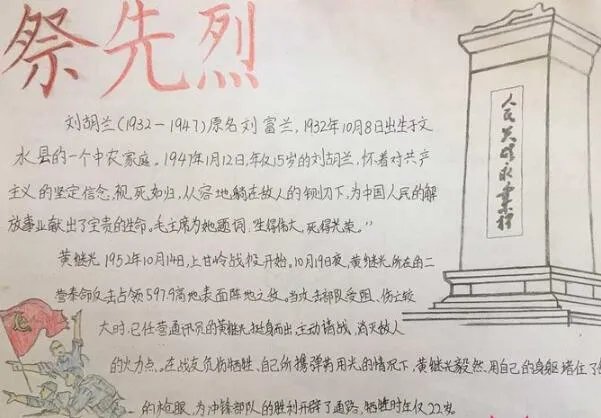 祭先烈
刘胡兰(1932-1947)原名刘富兰,1932年10月8日出生于文
水县的一个中农家庭。1947年1月12日,年仅15岁的刘胡兰,怀着对共产
主义的坚定信念,视死如归,从容地躺在敌人的铡刀下,为中国人民的解
放事业献出了宝贵的生命。毛主席为她题词:“生得伟大,死得光荣。”
黄继光1952年10月14日,上甘岭战役开始。10月19日夜,黄继光所在的二
营奉命攻击占领597.9高地表面阵地之敌。当攻击部队受阻、伤亡较
大时,已任营通讯员的黄继光,挺身而出,主动请战,消灭敌人
的火力点。在战友负伤牺牲、自己所携弹药用光的情况下,黄继光毅然用自己的身躯堵住了
的枪眼,为冲锋部队的胜利开辟了通路,牺牲时年仅22岁
人民英雄永垂不朽